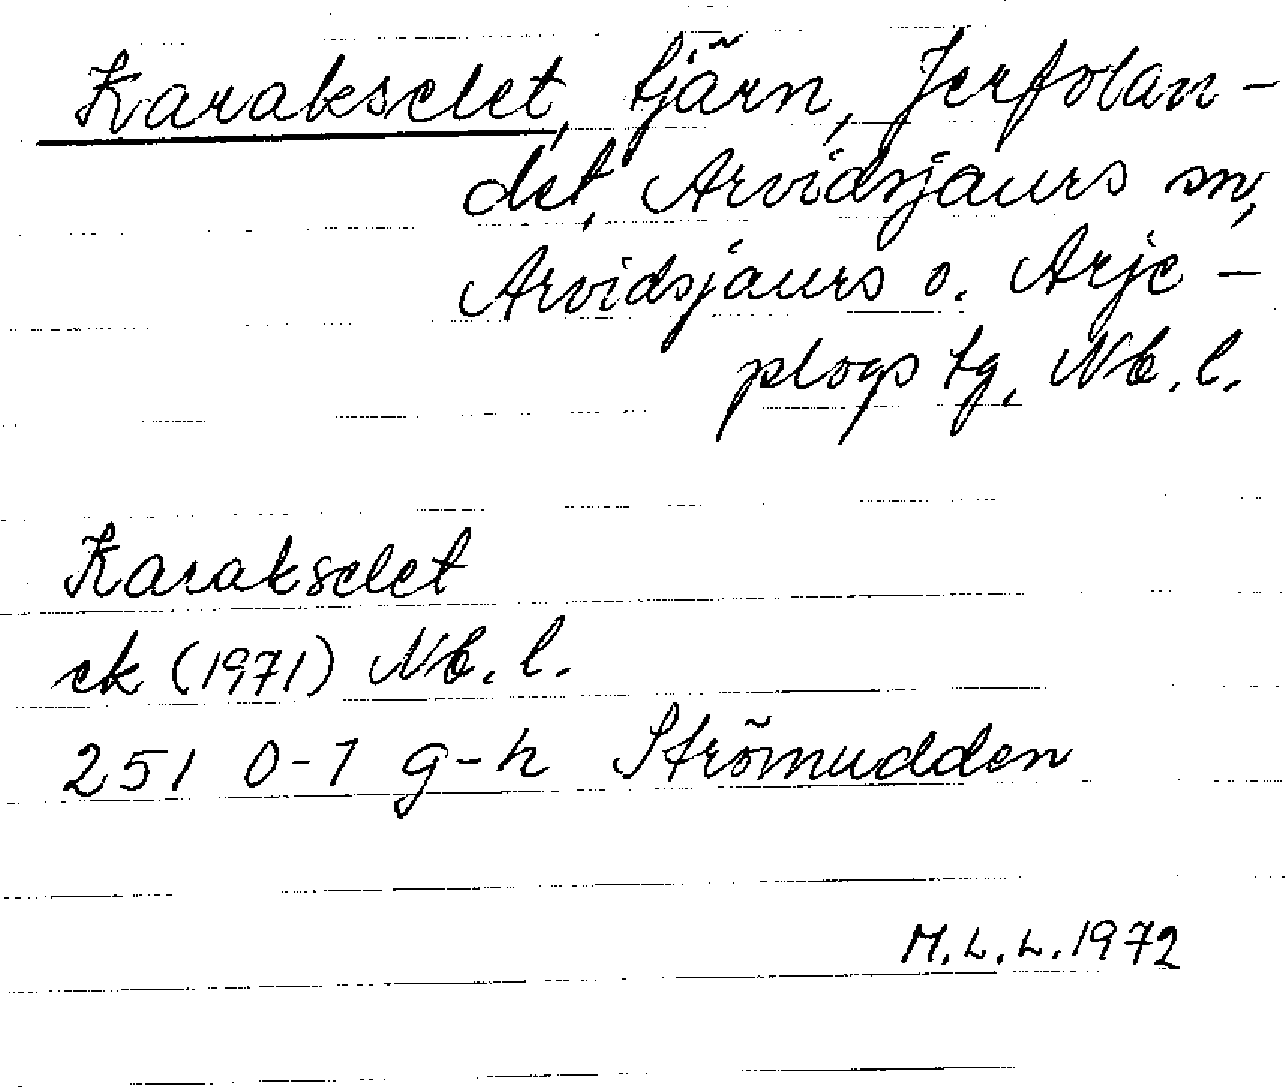 Karakselet, tjärn, Jerfolan-
det, Arvidsjaurs sn,
Arvidsjaurs o. Arje-
plogs tg, Nb. l.
Karakselet
ek (1971) Nb. l.
25I 0-1 g-h Strömudden
M.L.L. 1972